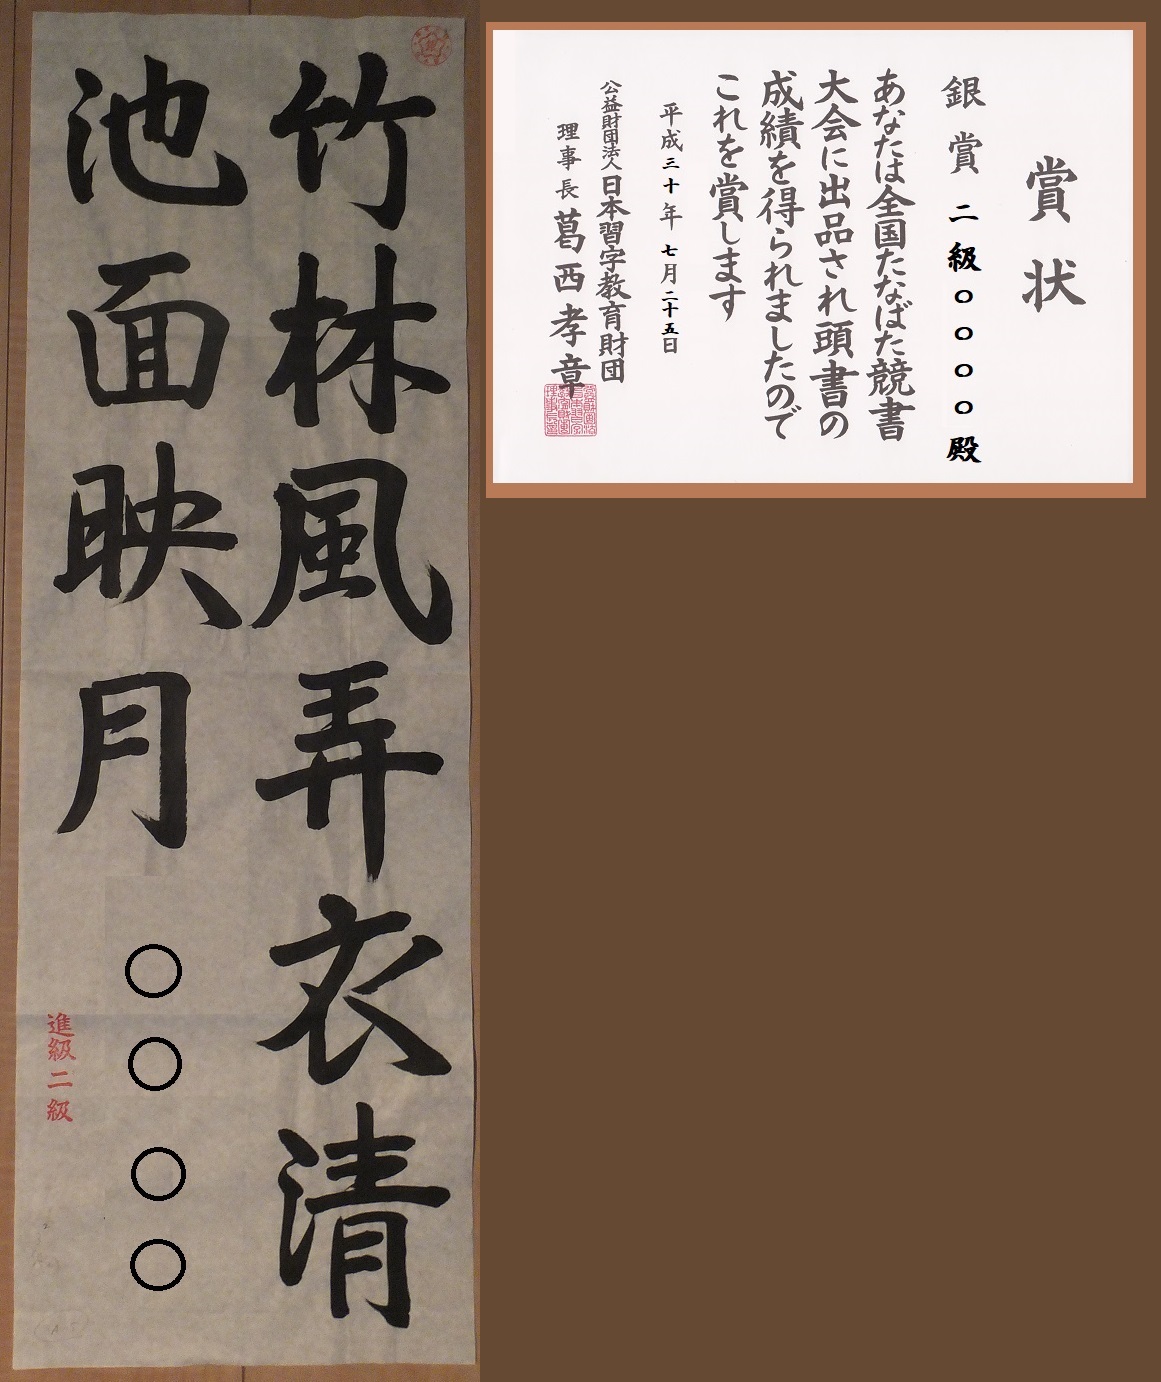 竹林風弄衣清
池面映月
○○○○
進級二級
賞状
銀賞 二級○○○○殿
あなたは全国たなばた競書
大会に出品され頭書の
成績を得られましたので
これを賞します
平成三十年七月二十五日
公益財団法人日本習字教育財団
理事長 葛西孝章